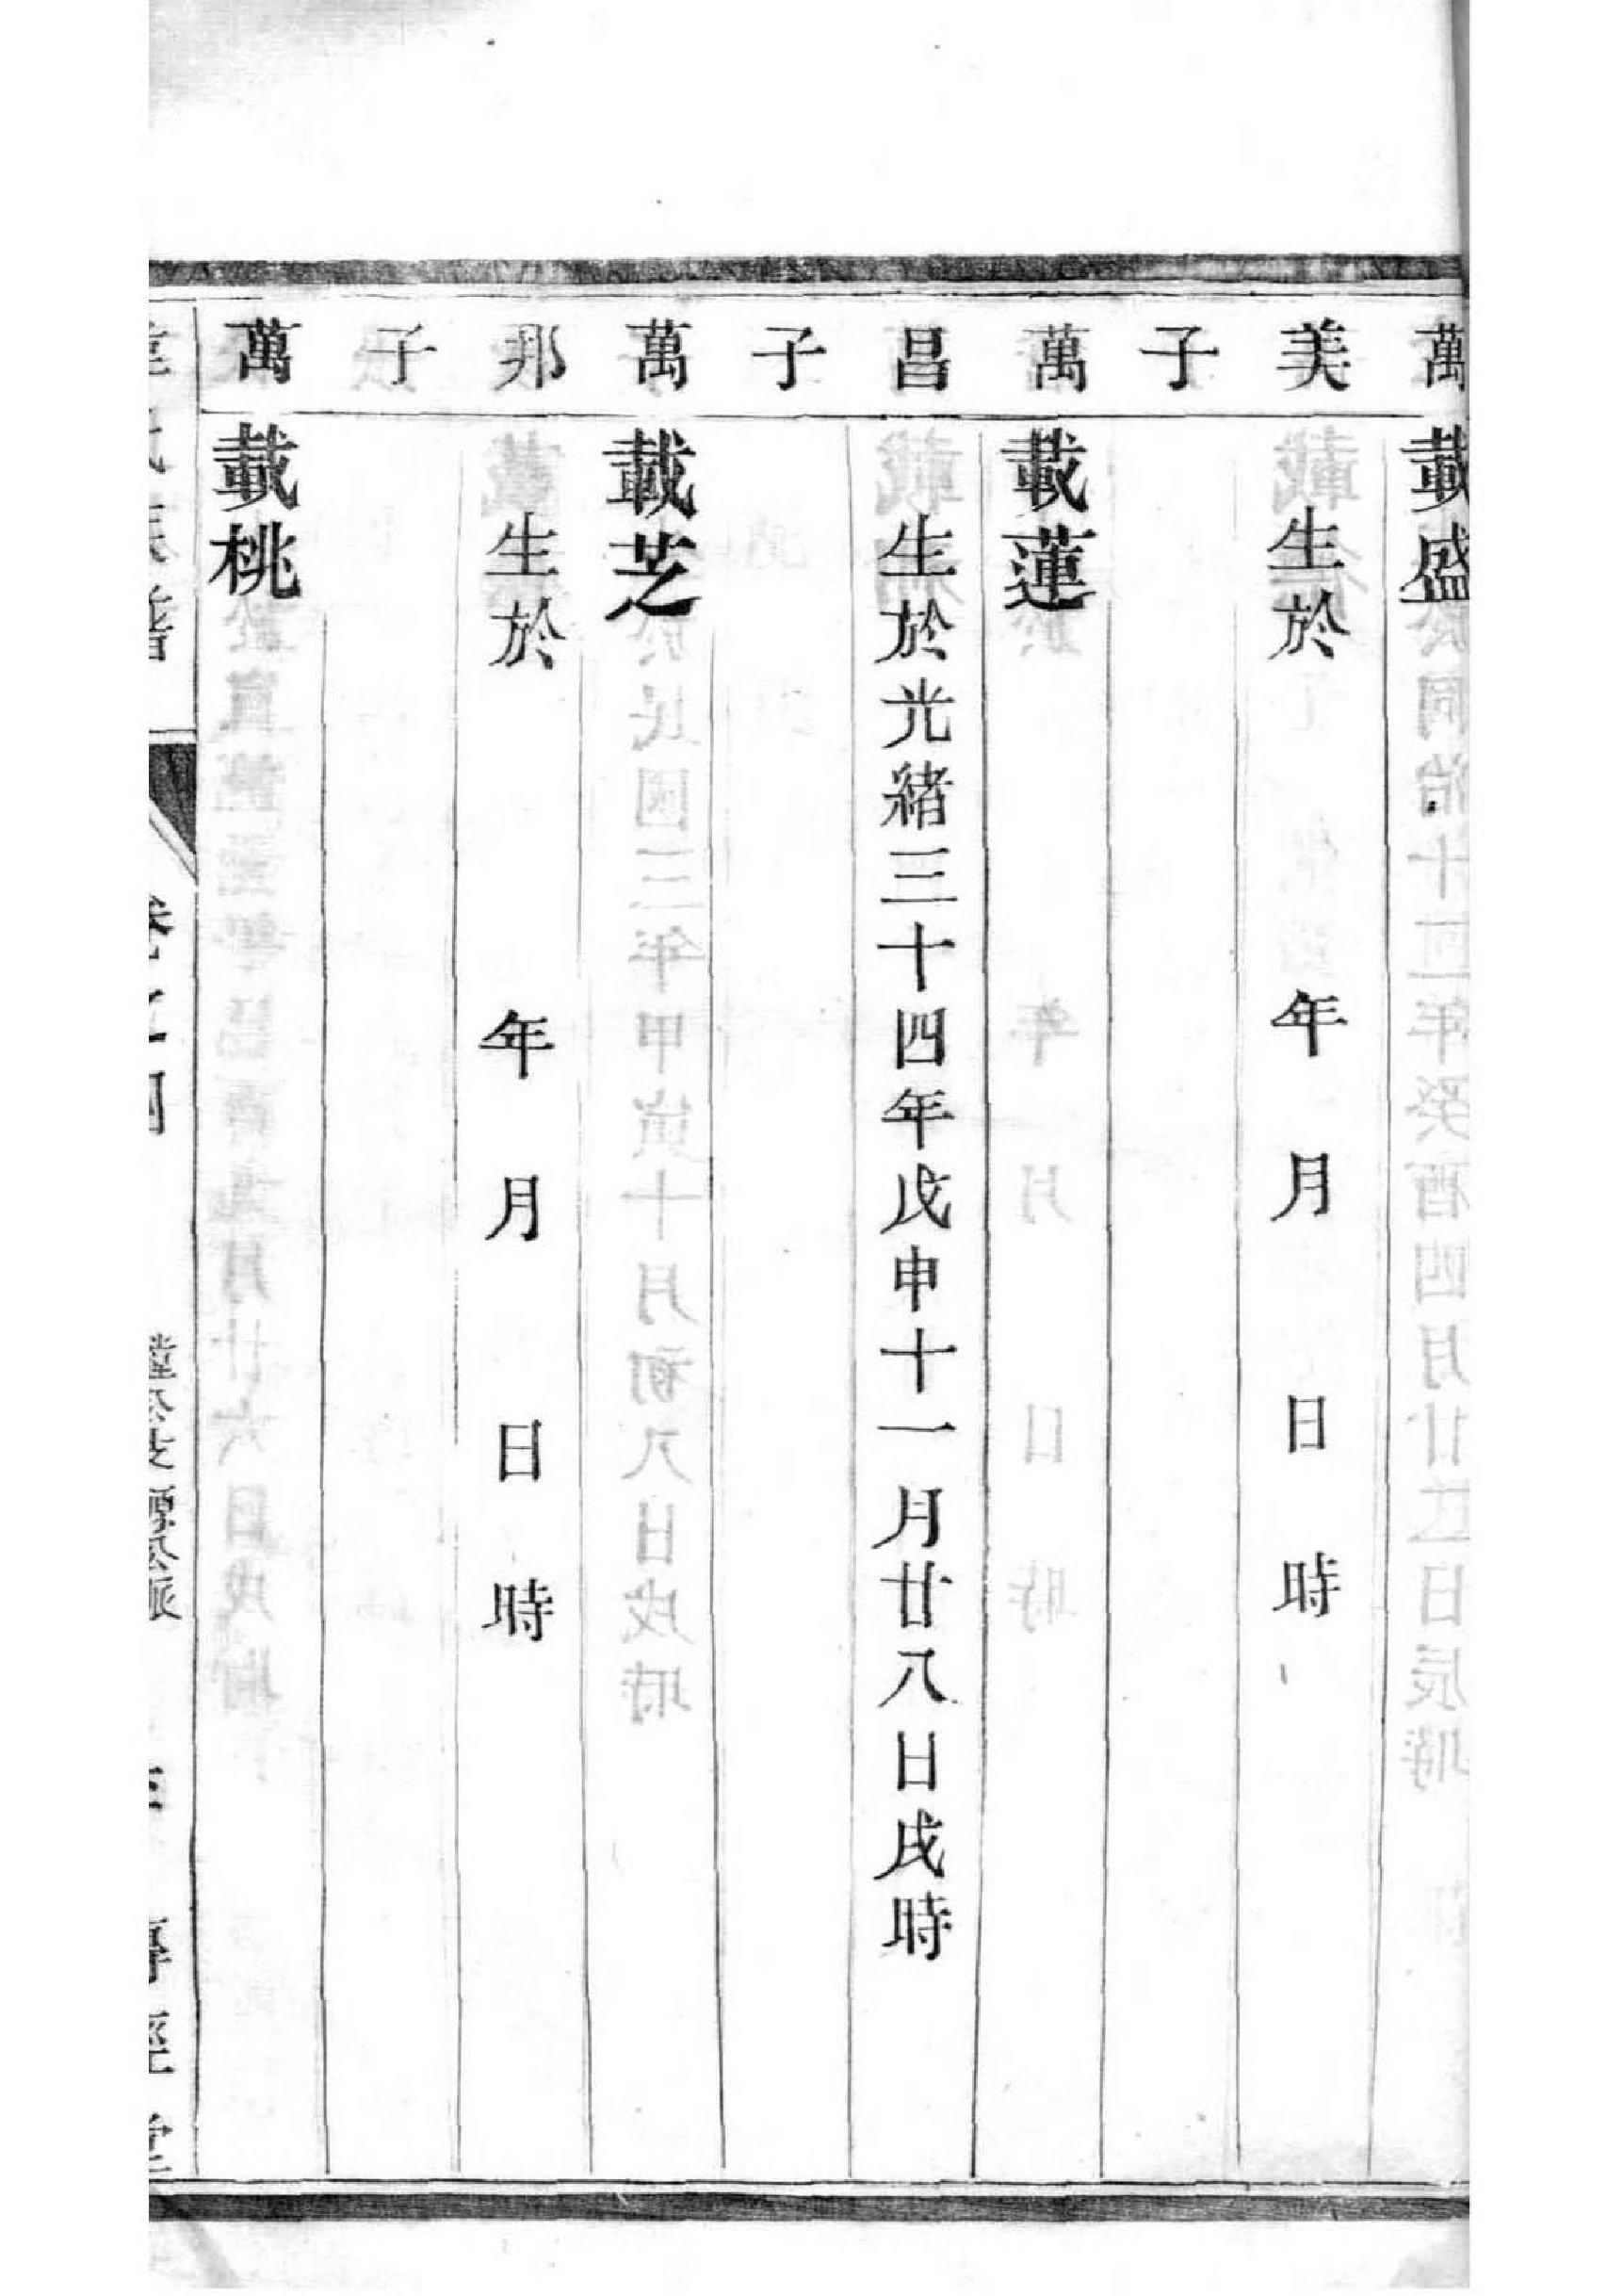 萬
載盛
美
生於 年 月 日 時
子
萬
載蓮
昌
生於光緒三十四年戊申十一月廿八日戌時
子
萬
載芝
邦
生於 年 月 日 時
子
萬
載桃